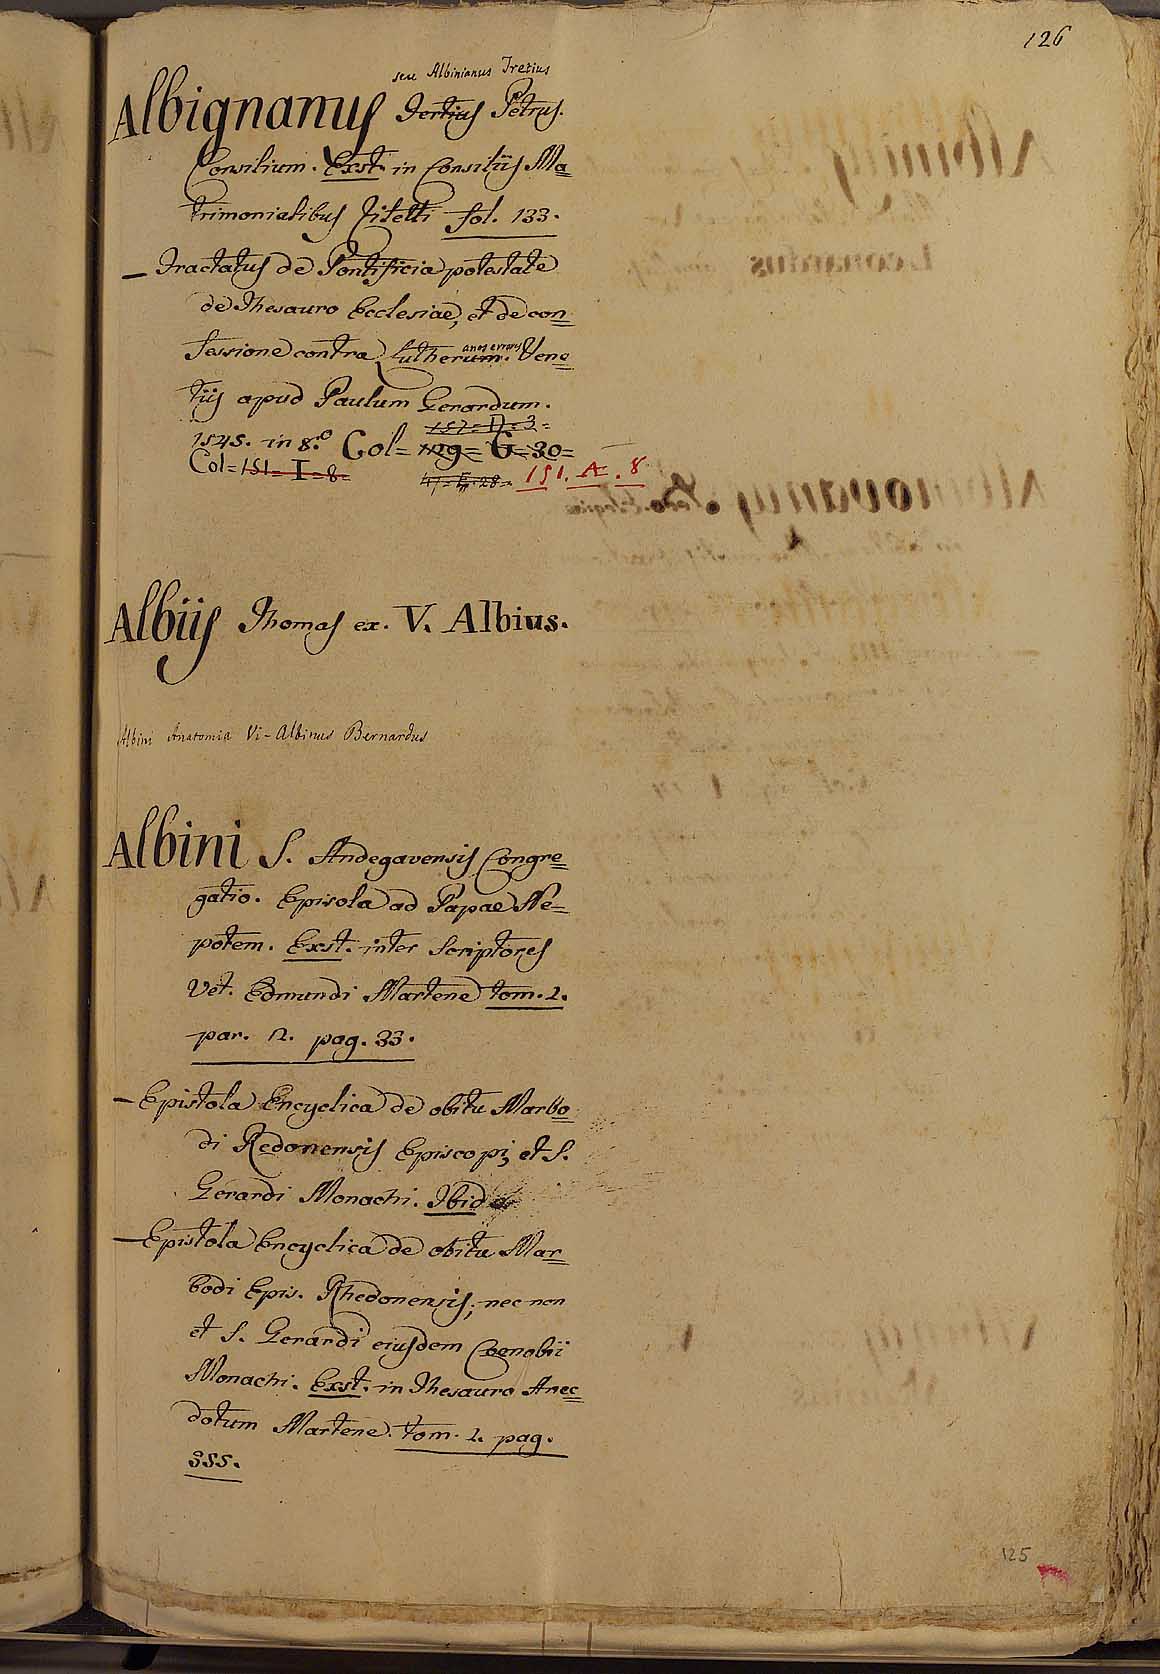 126
seu Albinianus Tretius
Albignanus Tertius Petrus.
Consilium. Exst. in Consiliis Ma=
trimonialibus Ziletti fol. 133.
– Tractatus de Pontificia potestate
de Thesauro Ecclesiae, et de con=
fessione contra Lutherum. Vene=
anos errores
tiis apud Paulum Gerardum.
1545. in 8.o Col=
Col= 151= I= 8=
151. A. 8
Albiis Thomas ex. V. Albius.
Albini Anatomia Vi- Albinus Bernardus
Albini S. Andegavensis Congre=
gatio. Episola ad Papae Ne=
potem. Exst. inter Scriptores
Vet. Edmundi Martene tom. 1.
par. 2. pag. 33.
– Epistola Encyclica de obitu Marbo=
di Redonensis Episcopi, et S.
Gerardi Monachi. Ibid
– Epistola Encyclica de obitu Mar=
bodi Epis. Rhedonensis, nec non
et S. Gerardi eiusdem Coenobii
Monachi. Exst. in Thesauro Anec=
dotum Martene. tom. 1. pag.
355.
125